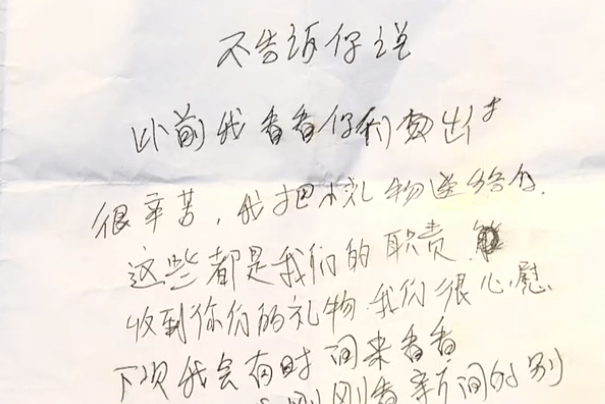 不告诉你说
卟前我看看你们 出才
很辛苦，我把小礼物送给
这些都是我们的职责
收到你们的礼物 我们很心慰
下次我会有时间来看看
刚刚看新闻的别